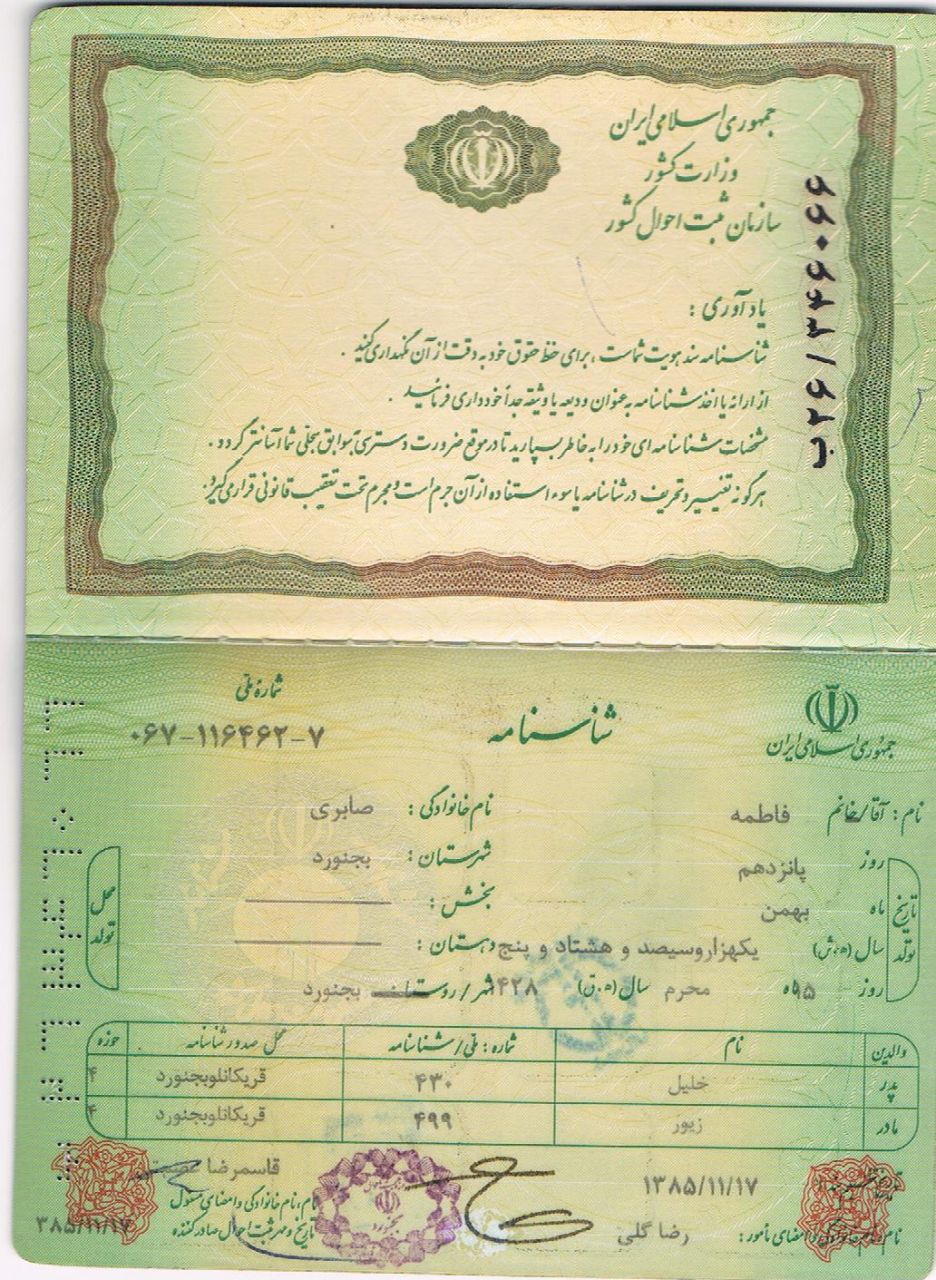 جمهوری اسلامی ایران
وزارت کشور
سازمان ثبت احوال کشور
ب۲۶/۳۴۶۰۶۶
یادآوری :
شناسنامه سند هویت شماست ، برای حفظ حقوق خود به دقت از آن نگهداری کنید .
از ارائه یا اخذ شناسنامه به عنوان ودیعه یا وثیقه جداً خودداری فرمائید .
مشخصات شناسنامه ای خود را به خاطر بسپارید تا در موقع ضرورت دسترسی به سوابق سجلی شما آسانتر گردد .
هرگونه تغییر و تحریف در شناسنامه یا سوء استفاده از آن جرم است و مجرم تحت تعقیب قانونی قرار می گیرد .
جمهوری اسلامی ایران
شناسنامه
شمارهٔ ملی
۰۶۷-۱۱۶۴۶۲-۷
نام : آقا/خانم فاطمه نام خانوادگی : صابری
تاریخ تولد
روز پانزدهم
ماه بهمن
سال (ه.ش) یکهزاروسیصد و هشتاد و پنج
روز ۱۵ ماه محرم سال (ه.ق) ۱۴۲۸
محل تولد
شهرستان : بجنورد
بخش :
دهستان :
شهر/روستا بجنورد
والدین نام شماره : ملی/شناسنامه محل صدور شناسنامه حوزه
پدر خلیل ۴۳۰ قریکانلوبجنورد ۴
مادر زیور ۴۹۹ قریکانلوبجنورد ۴
۱۳۸۵/۱۱/۱۷
رضا گلی
قاسمرضا
نام،نام خانوادگی و امضای مسئول
تاریخ و مهر ثبت احوال صادرکننده
۳۸۵/۱۱/۱۷